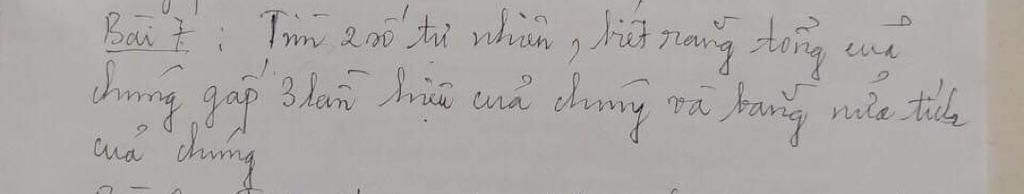 Bài 7 : Tìm 2 số tự nhiên, biết rằng tổng của
chúng gấp 3 lần hiệu của chúng và bằng nửa tích
của chúng